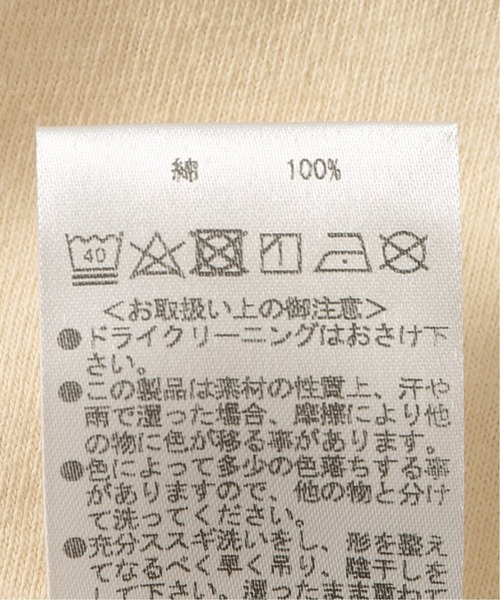 綿 100%
40
<お取扱い上の御注意>
●ドライクリーニングはおさけ下
さい。
●この製品は素材の性質上、汗や
雨で湿った場合、摩擦により他
の物に色が移る事があります。
●色によって多少の色落ちする事
がありますので、他の物と分け
て洗ってください。
●充分ススギ洗いをし、形を整え
てなるべく早く吊り、陰干しを
して下さい。湿ったまま重ねて